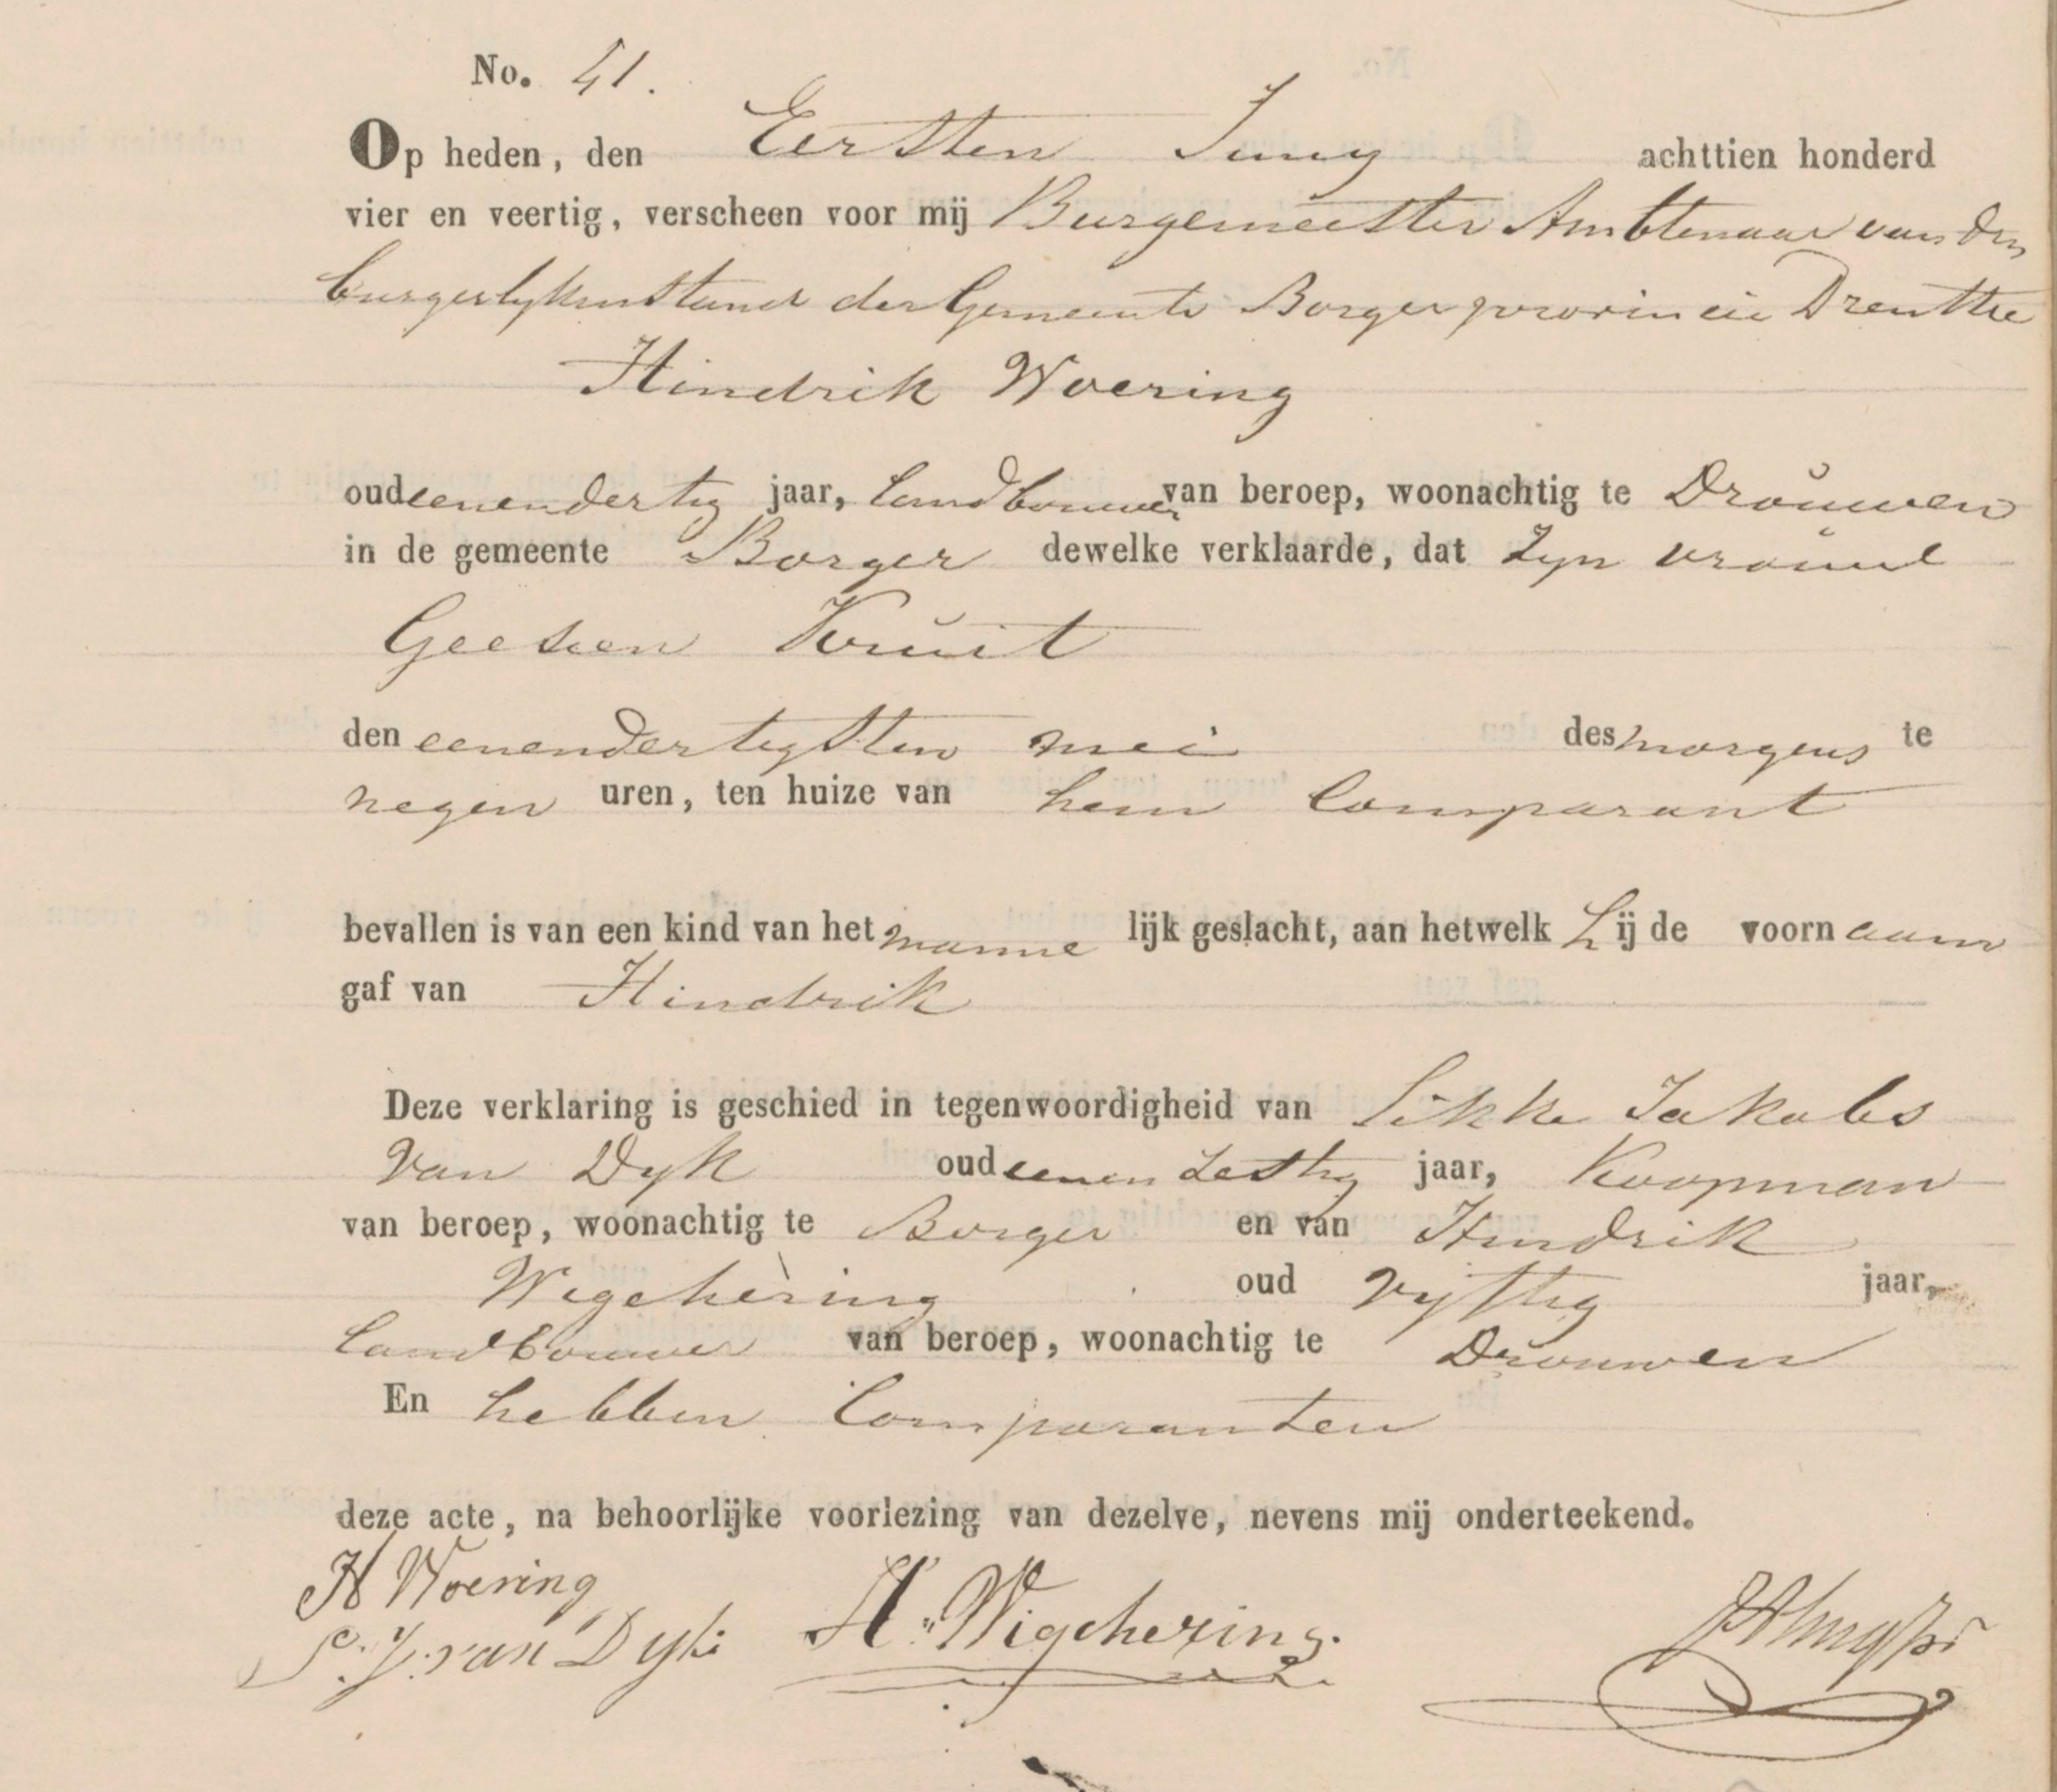 No. 41.
Op heden, den Eersten Juny achttien honderd
vier en veertig, verscheen voor mij Burgemeester Ambtenaar van den
burgerlyken Stand der Gemeente Borger provincie Drenthe
Hindrik Woering
oud eenendertig jaar, landbouwer van beroep, woonachtig te Drouwen
in de gemeente Borger dewelke verklaarde, dat zyn vrouw
Geesien Kruit
den eenendertigsten mei des morgens te
negen uren, ten huize van hem Comparant
bevallen is van een kind van het manne lijk geslacht, aan hetwelk Hij de voornaam
gaf van Hindrik
Deze verklaring is geschied in tegenwoordigheid van Sikke Jakobs
van Dyk oud eenenzestig jaar, Koopman
van beroep, woonachtig te Borger en van Hindrik
Wigchering oud vyftig jaar,
landbouwer van beroep, woonachtig te Drouwen
En hebben Comparanten
deze acte, na behoorlijke voorlezing van dezelve, nevens mij onderteekend.
H Woering
S. J. van Dyk H. Wigchering.